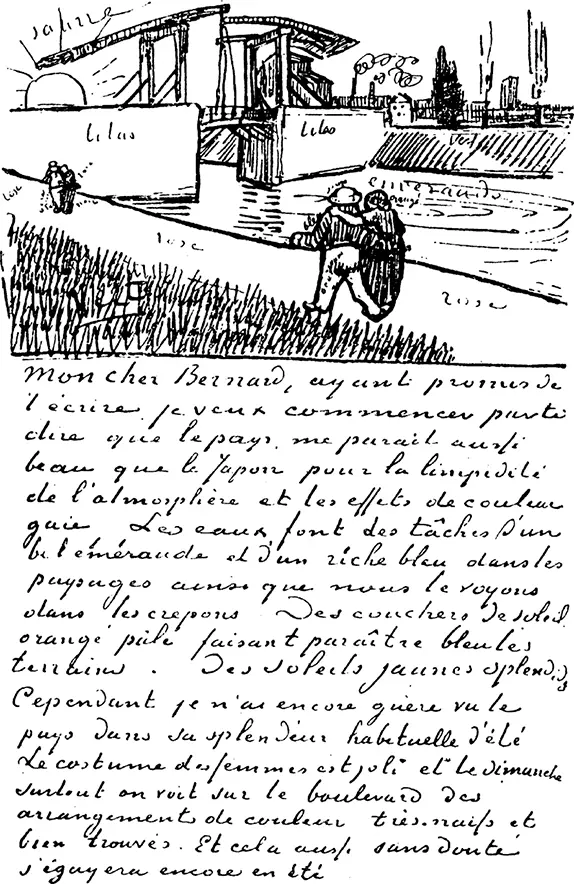 jaune
Lilas
Lilas
vert
emeraude
orangé
rose
rose
rose
Mon cher Bernard, ayant promis de
t'écrire je veux commencer par te
dire que le pays me parait aussi
beau que le Japon pour la limpidité
de l'atmosphère et les effets de couleur
gaie Les eaux font des tâches d'un
bel éméraude et d'un riche bleu dans les
paysages ainsi que nous le voyons
dans les crepons Des couchers de soleil
orangé pâle faisant paraître bleu les
terrains . Des soleils jaunes splendides
Cependant je n'ai encore guère vu le
pays dans sa splendeur habituelle d'été
Le costume des femmes est joli et le dimanche
surtout on voit sur le boulevard des
arrangements de couleur très naifs et
bien trouvés. Et cela aussi sans doute
s'égayera encore en été